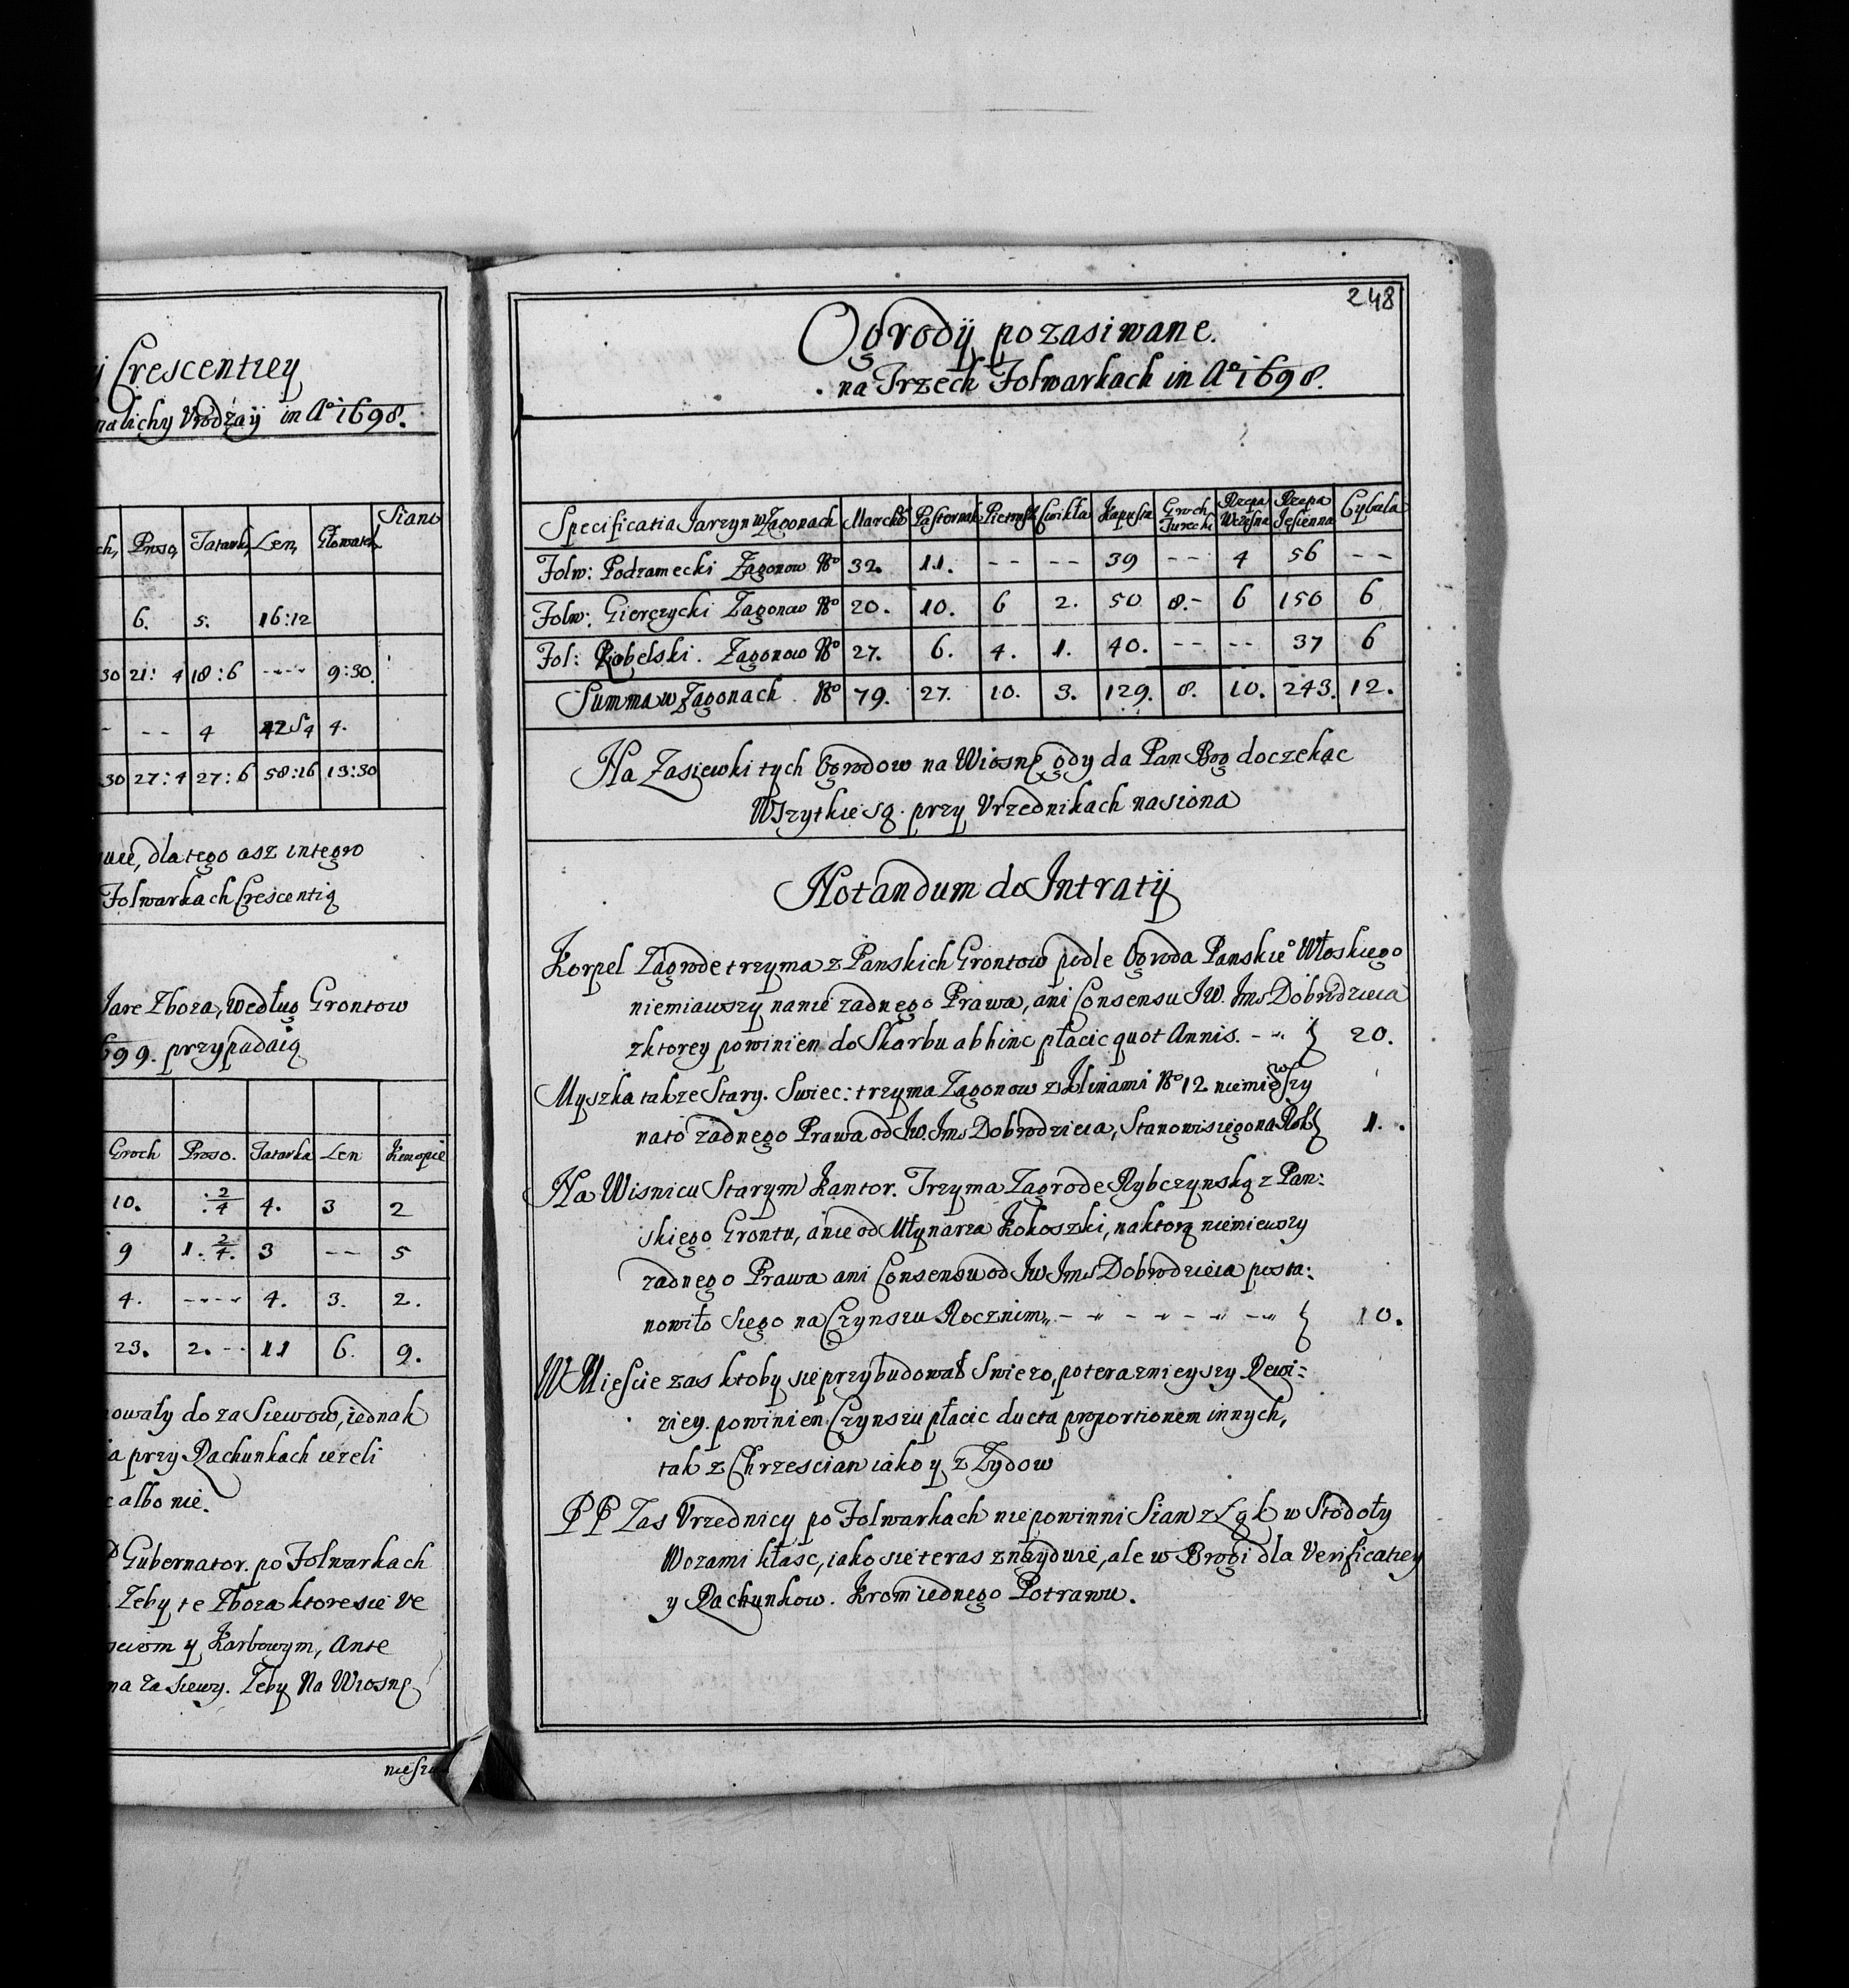 ÿ Crescentiey
nalichy Vrodzaÿ in Aº 1698.
ch, Proso, Tatark, Len, Głowatek, Siano
6. 5. 16:12
30 21: 4 18:6 ---- 9:30.
- -- 4 4254 4.
30 27:4 27:6 58:16 13:30
dlatego asz integro
Folwarkach Crescentią
Jare Zboza, według Grontow
699. przypadaią
Groch Proso. Tatarka Len Konopie
10. 2/4 4. 3 2
9 1. 2/4. 3 -- 5
4. ---- 4. 3. 2.
23. 2.-- 11 6. 9.
owały do za Siewow, iednak
a przy Rachunkach iezeli
albo nie.
P Gubernator. po Folwarkach
Zeby te Zboza ktore sie ve
y Karbowym, Ante
na za siewy. Zeby Na Wiosnę
248
Ogrodÿ pozasiwane.
na Trzech Folwarkach in Aº 1698.
Specificatia Jarzyn w Zagonach Marchw Pasternak Pietruszk Cwikła Kapusta Groch Turecki Rzepa Wczesna Rzepa Jesienna Cybula
Folw: Podzamecki Zagonow Nº 32. 11. -- -- 39 -- 4 56 --
Folw: Gierczycki Zagonow Nº 20. 10. 6 2. 50 8.- 6 150 6
Fol: Kobelski. Zagonow Nº 27. 6. 4. 1. 40. -- -- 37 6
Summa w Zagonach. Nº 79. 27. 10. 3. 129. 8. 10. 243. 12.
Na Zasiewki tych Ogrodow na Wiosnę gdy da Pan Bog doczekac
Wszytkie są przy Vrzednikach nasiona
Notandum do Intratÿ
Korpel Zagrode trzyma z Panskich Grontow podle Ogroda Panskieº Włoskiego
niemiawszy nanie zadnego Prawa, ani Consensu Jw. Jms Dobrodzieia
zktorey powinien do Skarbu abhinc płacic quot Annis. -- 20.
Myszka takze Stary. Swiec: trzyma Zagonow z Nº 12 niemiawszy
nato zadnego Prawa od Jw. Jms Dobrodzieia, Stanowi sięgo na Rok 1.
Na Wisnicu Starym Kantor. Trzyma Zagrode Rybczynską z Pan:
skiego Grontu, anie od Młynarza Kokoszki, na ktorą niemiewszy
zadnego Prawa ani Consensu od Jw Jms Dobrodzieia posta:
nowiło siego na Czynszu Rocznim, - - - - - - 10.
W Miescie zas ktoby sie przybudował Swiezo, po terazniejszy Rewi:
ziey. powinien Czynszu płacic ducta proportionem innych,
tak z Chrzescian iako y z Zydow
PP Zas Vrzednicy po Folwarkach nie powinni Sian z Łąk w Stodoły
Wozami kłasc, iako sie teras znayduie, ale w Brogi dla Verificatiey
y Rachunkow. Krom iednego Potrawu.